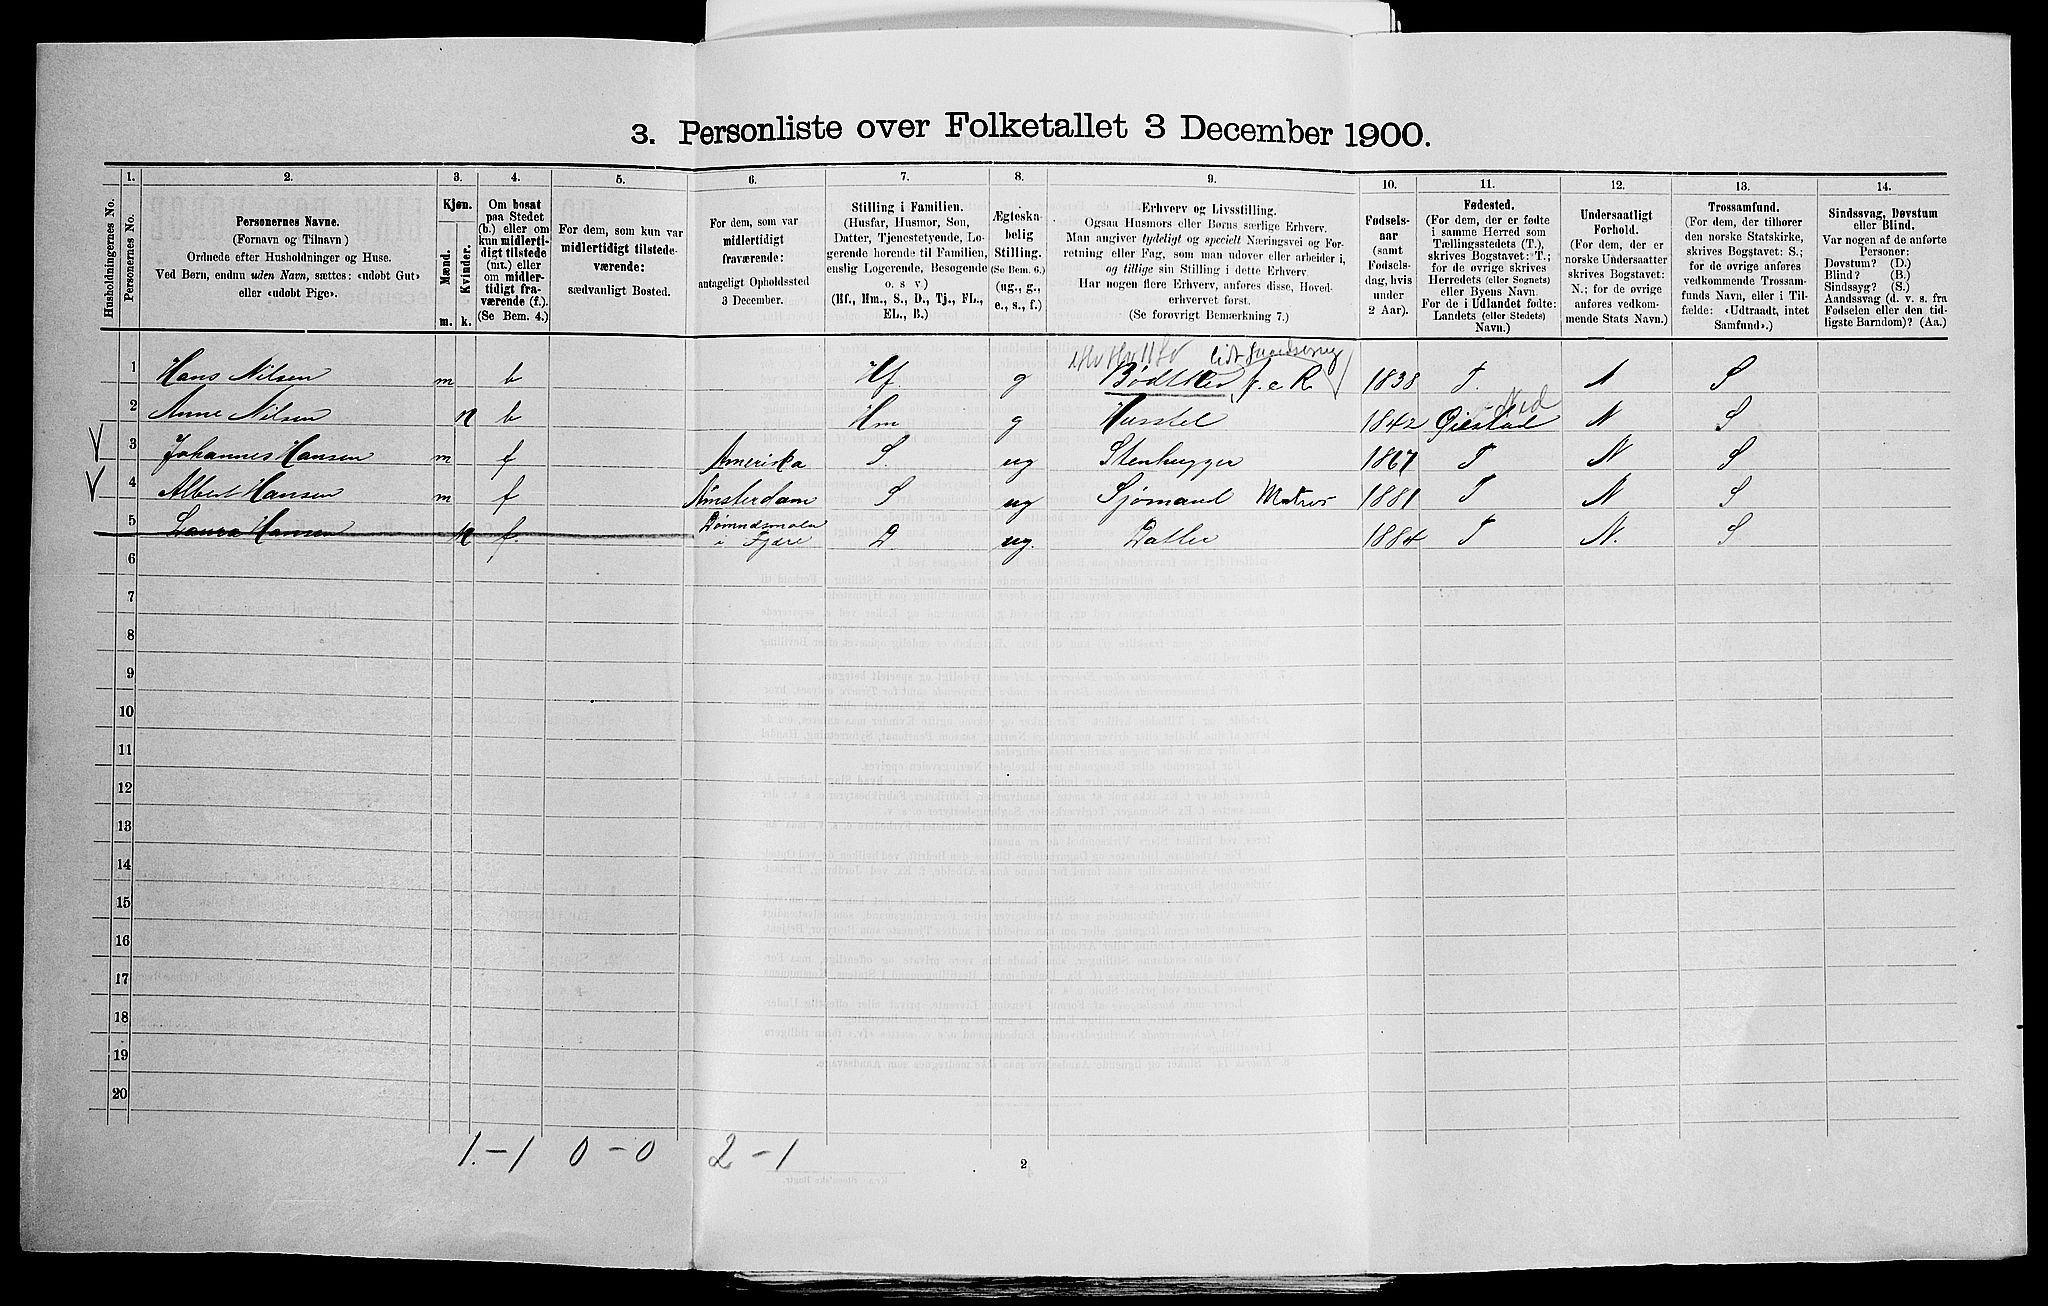 3. Personliste over Folketallet 3 December 1900.
1. 2. 3. 4. 5. 6. 7. 8. 9. 10. 11. 12. 13. 14.
Husholdningernes No.
Personernes No.
Personernes Navne.
(Fornavn og Tilnavn)
Ordnede efter Husholdninger og Huse.
Ved Børn, endnu uden Navn, sættes: «udøbt Gut»
eller «udøbt Pige».
Kjøn.
Mænd.
Kvinder.
m. k.
Om bosat
paa Stedet
(b.) eller om
kun midlerti-
digt tilstede
(mt.) eller
om midler-
tidigt fra-
værende (f.).
(Se Bem. 4.)
For dem, som kun var
midlertidigt tilstede-
værende:
sædvanligt Bosted.
For dem, som var
midlertidigt
fraværende:
antageligt Opholdssted
3 December.
Stilling i Familien.
(Husfar, Husmor, Søn,
Datter, Tjenestetyende, Lo-
gerende hørende til Familien,
enslig Logerende, Besøgende
o. s v.)
(Hf., Hm., S., D., Tj., FL.,
EL., B.)
Ægteska-
belig
Stilling.
(Se Bem. 6.)
(ug., g.,
e., s., f.)
Erhverv og Livsstilling.
Ogsaa Husmors eller Børns særlige Erhverv.
Man angiver tydeligt og specielt Næringsvei og For-
retning eller Fag, som man udøver eller arbeider i,
og tillige sin Stilling i dette Erhverv.
Har nogen flere Erhverv, anføres disse, Hoved-
erhvervet først.
(Se forøvrigt Bemærkning 7.)
Fødsels-
aar
(samt
Fødsels-
dag, hvis
under
2 Aar).
Fødested.
(For dem, der er fødte
i samme Herred som
Tællingsstedets (T.),
skrives Bogstavet: T.;
for de øvrige skrives
Herredets (eller Sognets)
eller Byens Navn.
For de i Udlandet fødte:
Landets (eller Stedets)
Navn.)
Undersaatligt
Forhold.
(For dem, der er
norske Undersaatter
skrives Bogstavet:
N.; for de øvrige
anføres vedkom-
mende Stats Navn.)
Trossamfund.
(For dem, der tilhører
den norske Statskirke,
skrives Bogstavet: S.;
for de øvrige anføres
vedkommende Trossam-
funds Navn, eller i Til-
fælde: «Udtraadt, intet
Samfund».)
Sindssvag, Døvstum
eller Blind.
Var nogen af de anførte
Personer:
Døvstum? (D.)
Blind? (B.)
Sindssyg? (S.)
Aandssvag (d. v. s. fra
Fødselen eller den tid-
ligste Barndom)? (Aa.)
1 Hans Nilsen m b Hf. g Bødtker f. e R. 1838 T. N S
2 Anne Nilsen k b Hm g Husstel 1842 Øiestad N S
3 Johannes Hansen m f Amerika S. ug Stenhugger 1867 T N S
4 Albert Hansen m f Amsterdam S ug Sjømand Matros 1881 T N S
5 Laura Hansen k f. i Fjære D ug. Datter 1884 T N. S
6
7
8
9
10
11
12
13
14
15
16
17
18
19
20
1.-1 0-0 2-1
2